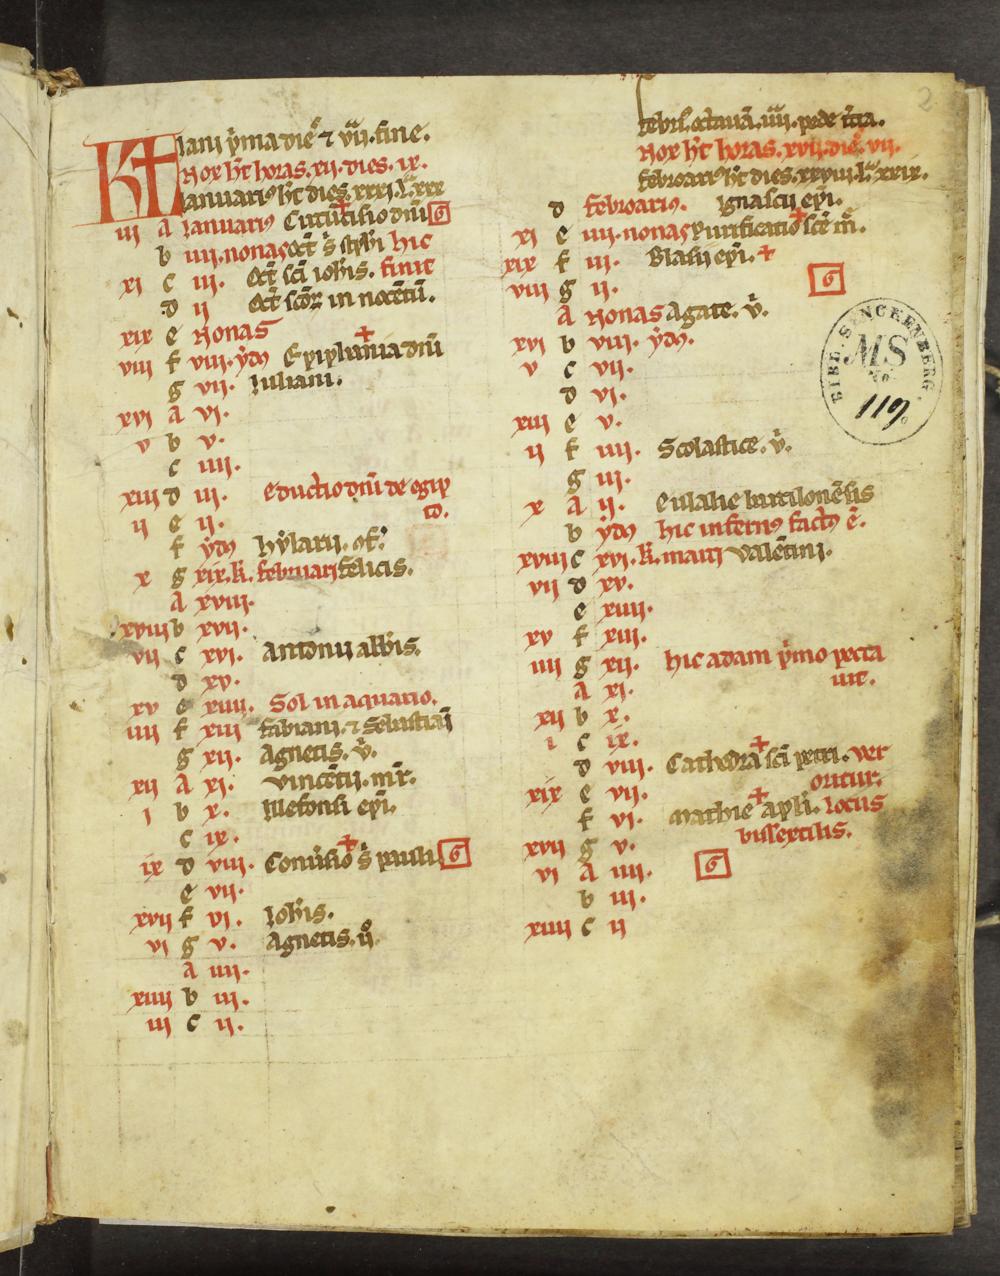 Kł
Iani p̾ma dieˢ ⁊ vij. fine.
Nox hт horas. xvj. dies. ix.
Ianuarius hт dies. xxxi. L. xxx
iij a Ianuarius Circūcisio dnī
b iiij. nonas oct̄ s̄ stephī hic
xi c iij. Oct̄ scī ioh̄is. finit
d ij Oct̄ scōꝝ innocētū.
xix e Nonas
viij f viij. ydus Epiphania dnī
g vij. Iuliani.
xvj a vi.
v b v.
c iiij.
xiij d iij. eductio dnī de egip
to.
ij e ij.
f ydus hylarii. of.
x g xix. k. februarii felicis.
a xviij.
xviij b xvij.
vij c xvi. Antonii abb̄is.
d xv.
xv e xiiij. Sol in aquario.
iiij f xiij fabiani. ⁊ Sebastiani
g xij. Agnetis. v̾.
xij a xi. vincētii. mr̄.
i b x. Illefonsi ep̄i.
c ix.
ix d viij. Conūsio s̄ pauli
e vij.
xvij f vi. Ioh̄is.
vi g v. Agnetis. ijº
a iiij.
xiiij b iij.
iij c ij.
2
febrˢ. octauā. iiij. pede
Nox hт horas. xvij. dieˢ. vij.
februarius hт dies. xxviij. L. xxix.
d februarius. ignascii ep̄i.
xi e iiij. nonas purificatio scē m̄.
xix f iij. Blasii ep̄i.
viij g ij.
a Nonas Agate. v̾.
xvi b viij. ydus.
v c vij.
d vi.
xiij e v.
ij f iiij. Scolastice. v̾.
g iij.
x a ij. eulalie barcilonēsis
b ydus hic infernus factus ē.
xviij c xvi. k. marcii valētini.
vij d xv.
e xiiij.
xv f xiij.
iiij g xij. hic adam p̾mo pecca
uit.
a xi.
xij b x.
i c ix.
d viij. Cathedra scī petri. ver
oritur.
xix e vij.
f vi. mathie ap̄li. locus
bissextilis.
xvij g v.
vi a iiij.
b iij.
xiiij c ij
BIBL. SENCKENBERG.
MS
No.
119.